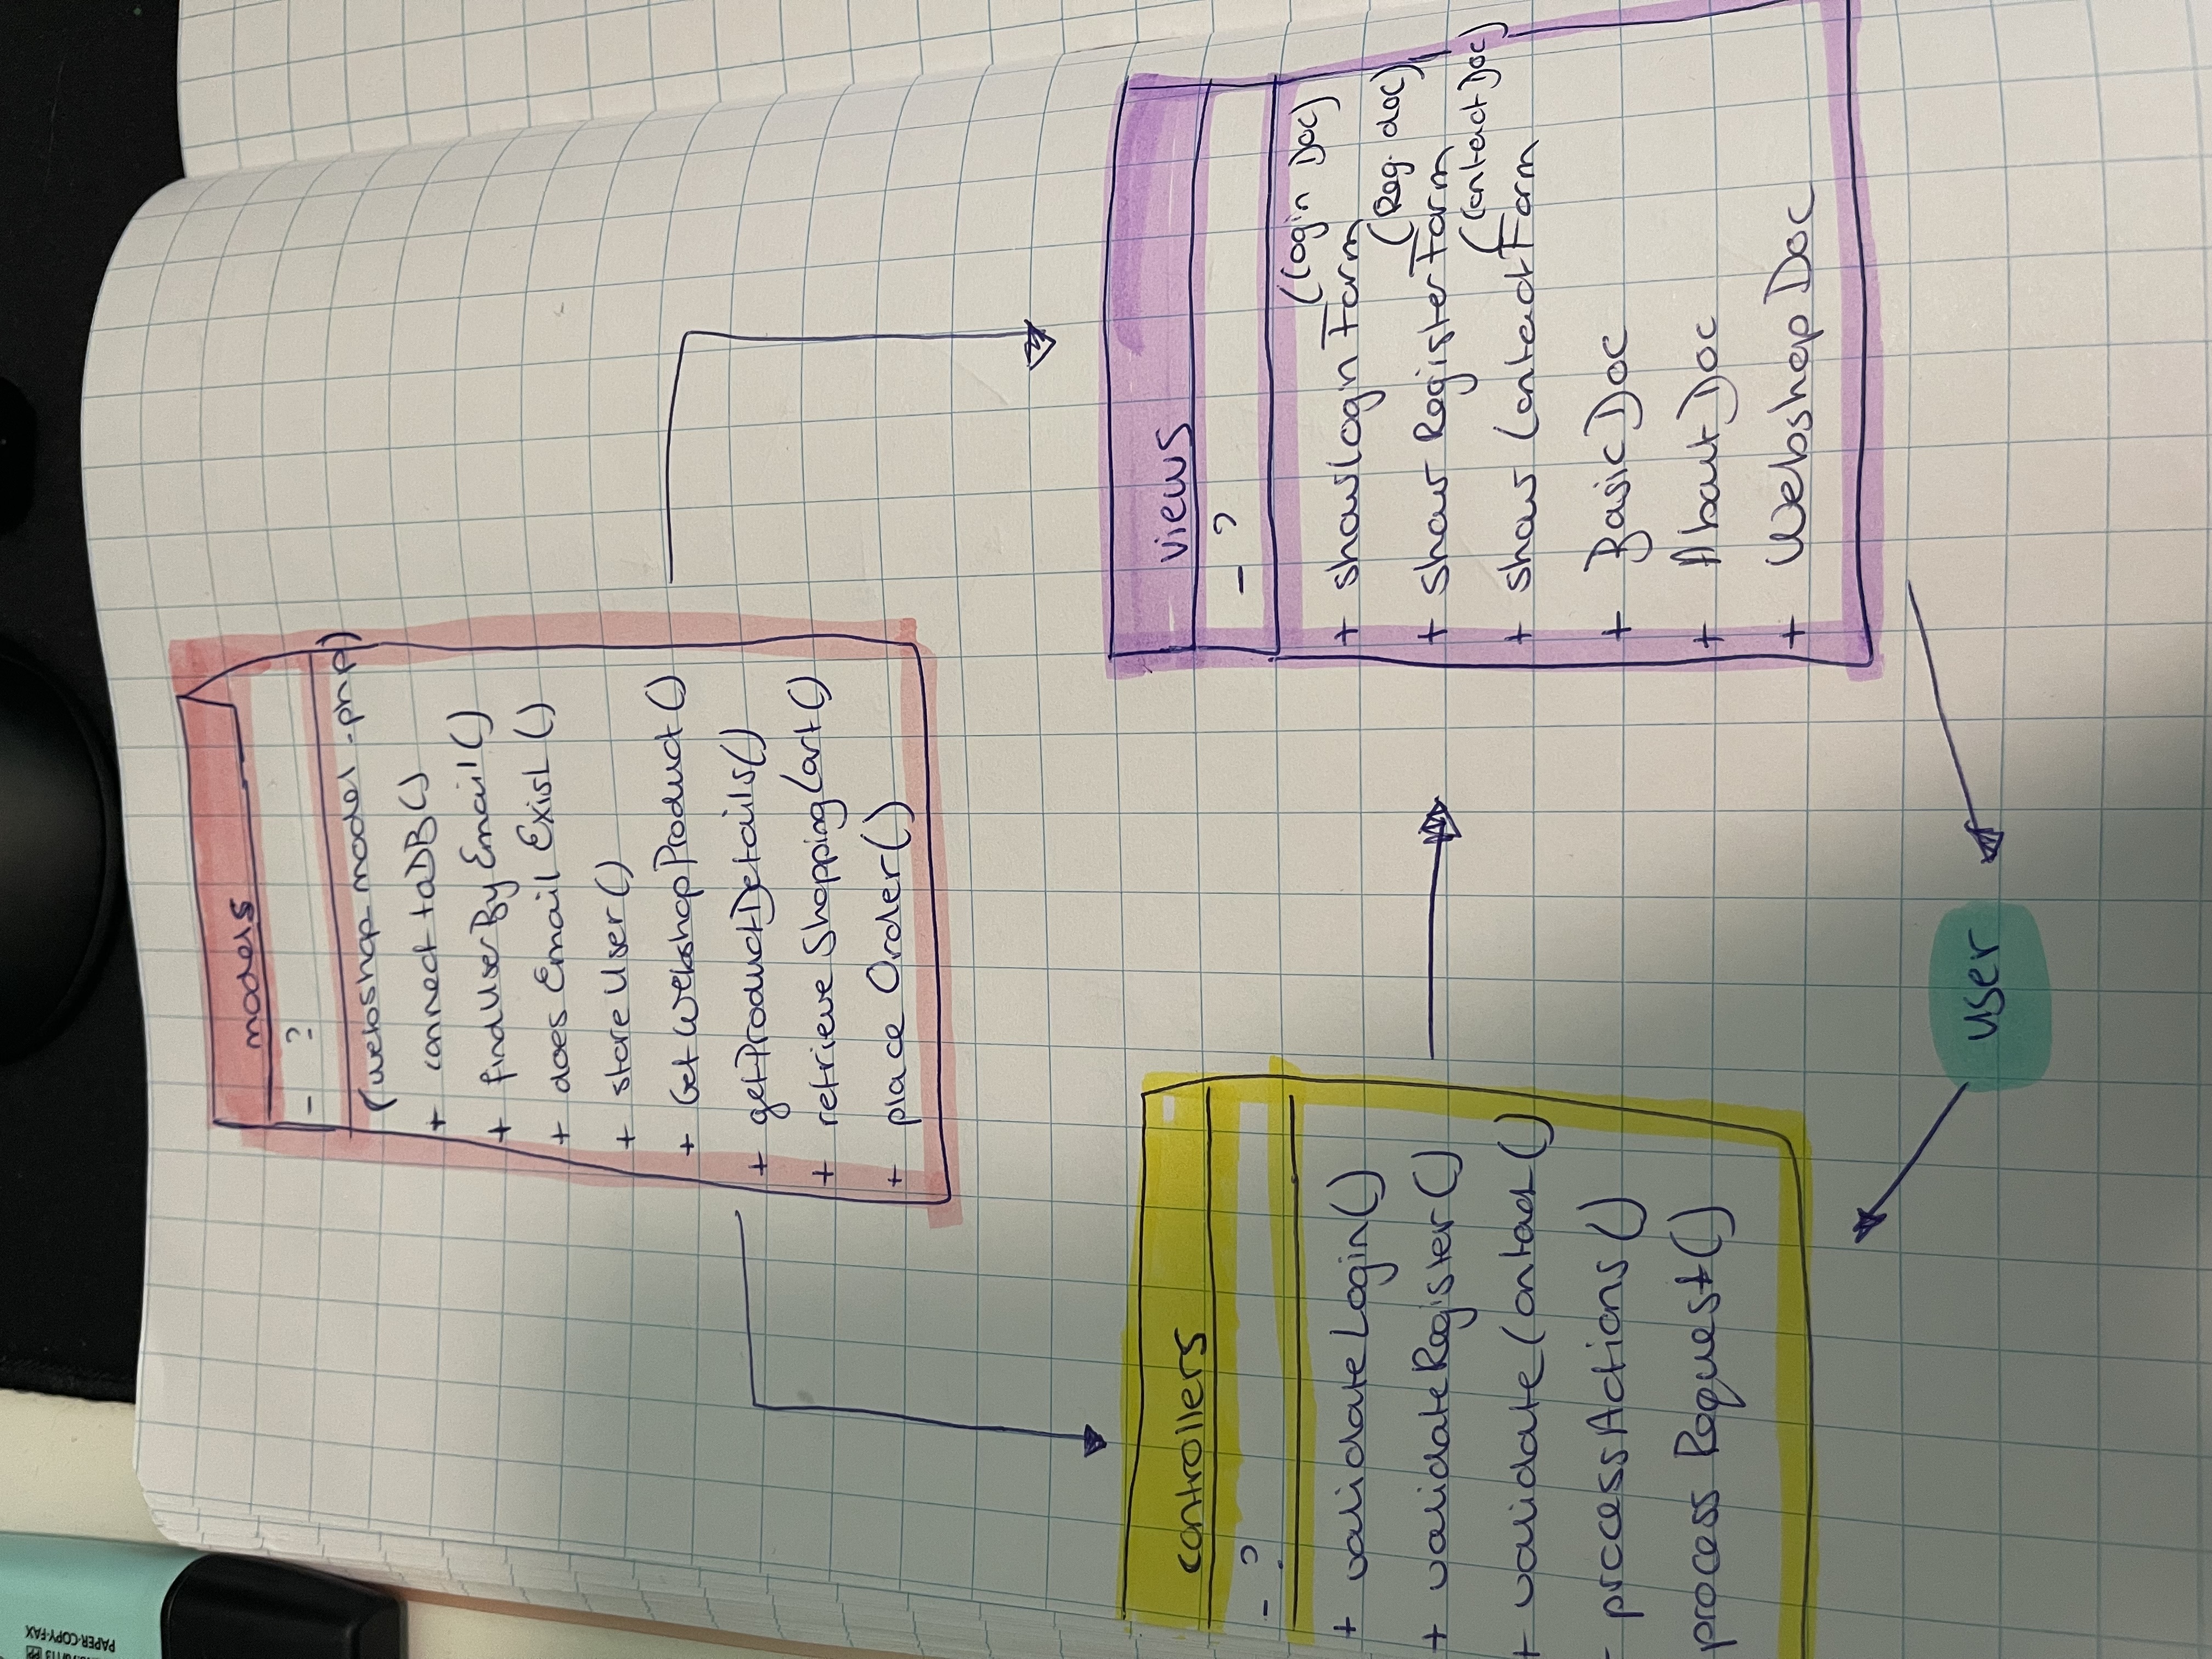 PAPER-COPY-FAX
models
- ?
(webshop model.php)
+ connect toDB()
+ findUserByEmail()
+ does Email Exist ()
+ store User()
+ Get WebshopProduct()
+ getProductDetails()
+ retrieve ShoppingCart()
+ place Order()
controllers
- ?
+ validateLogin()
+ validateRegister()
+ validateContact()
- processActions()
process Request()
views
- ?
(login Doc)
+ showlogn Form
(Reg. doc)
+ show RegisterForm
(Contact Doc)
+ show ContactForm
+ Basic Doc
+ About Doc
+ Webshop Doc
user